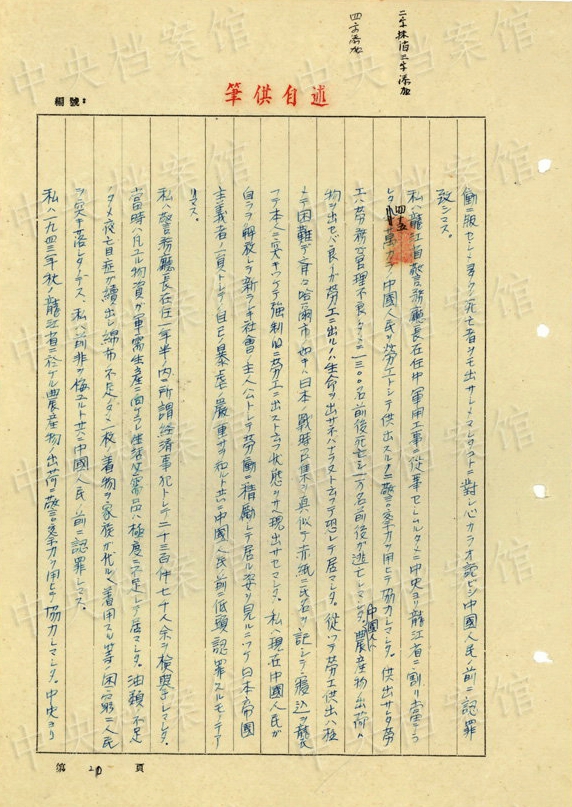 二字抹消三字添加
四字添加
述自供筆
編號:
働ニ服セシメ多クノ死亡者ヲモ出サシメマシタコトニ対シ心カラオ詫ビシ中国人民ノ前ニ認罪
致シマス。
私ハ龍江省警務廳長在任中軍用工事ニ従事セシムルタメニ中央ヨリ龍江省ニ割リ當テラ
レタ四、五萬ノ中国人民ヲ労工トシテ供出スルタメ警察力ヲ用ヒテ協力シマシタ。供出サレタ労
工ハ労務管理不良ノタメニ一三〇〇名前後死亡シ一万名前後が逃亡シマシタ。中国人ハ農産物ノ出荷ハ
物ヲ出セバ良イガ労工ニ出ルノハ生命ヲ出サネバナラヌト云ツテ恐レテ居マシタ。従ツテ労工供出ハ極
メテ困難デ育々哈爾市ノ如キハ日本ノ戦時召集ノ真似ヲシ赤紙ニ氏名ヲ記シテ寝込ヲ襲
フテ本人ニ突キツケテ強制的ニ労工ニ出スト云フ状態サヘ現出サセマシタ。私ハ現在中国人民ガ
自ラヲ解放シテ新ラシキ社會ノ主人公トシテ労働ニ精励シテ居ル姿ヲ見ルニツケ日本帝国
主義者ノ一員トシテノ自己ノ暴虐ノ嚴重サヲ知ルト共ニ中国人民ノ前ニ低頭認罪スルモノデア
リマス。
私ハ警務廳長在任一年半ノ内ニ所謂経済事犯トシテ二十三百件七千人余ヲ検挙シマシタ。
當時ハ凡ユル物資ガ軍需生産ニ向ケラレ生活必需品ハ極度ニ不足シテ居マシタ。油類ノ不足
ノタメ夜亡目症ガ續出シ綿布ノ不足ノタメ一枚ノ着物ヲ家族ガ代ル〱着用スル等ノ困窮ニ人民
ヲ突キ落シタノデス。私ハ前非ヲ悔ユルト共ニ中国人民ノ前ニ認罪シマス。
私ハ一九四三年秋ノ龍江省ニ於ケル農産物ノ出荷ニ警察力ヲ用ヒテ協力シマシタ。中央ヨリ
第 20 頁
中央档案馆